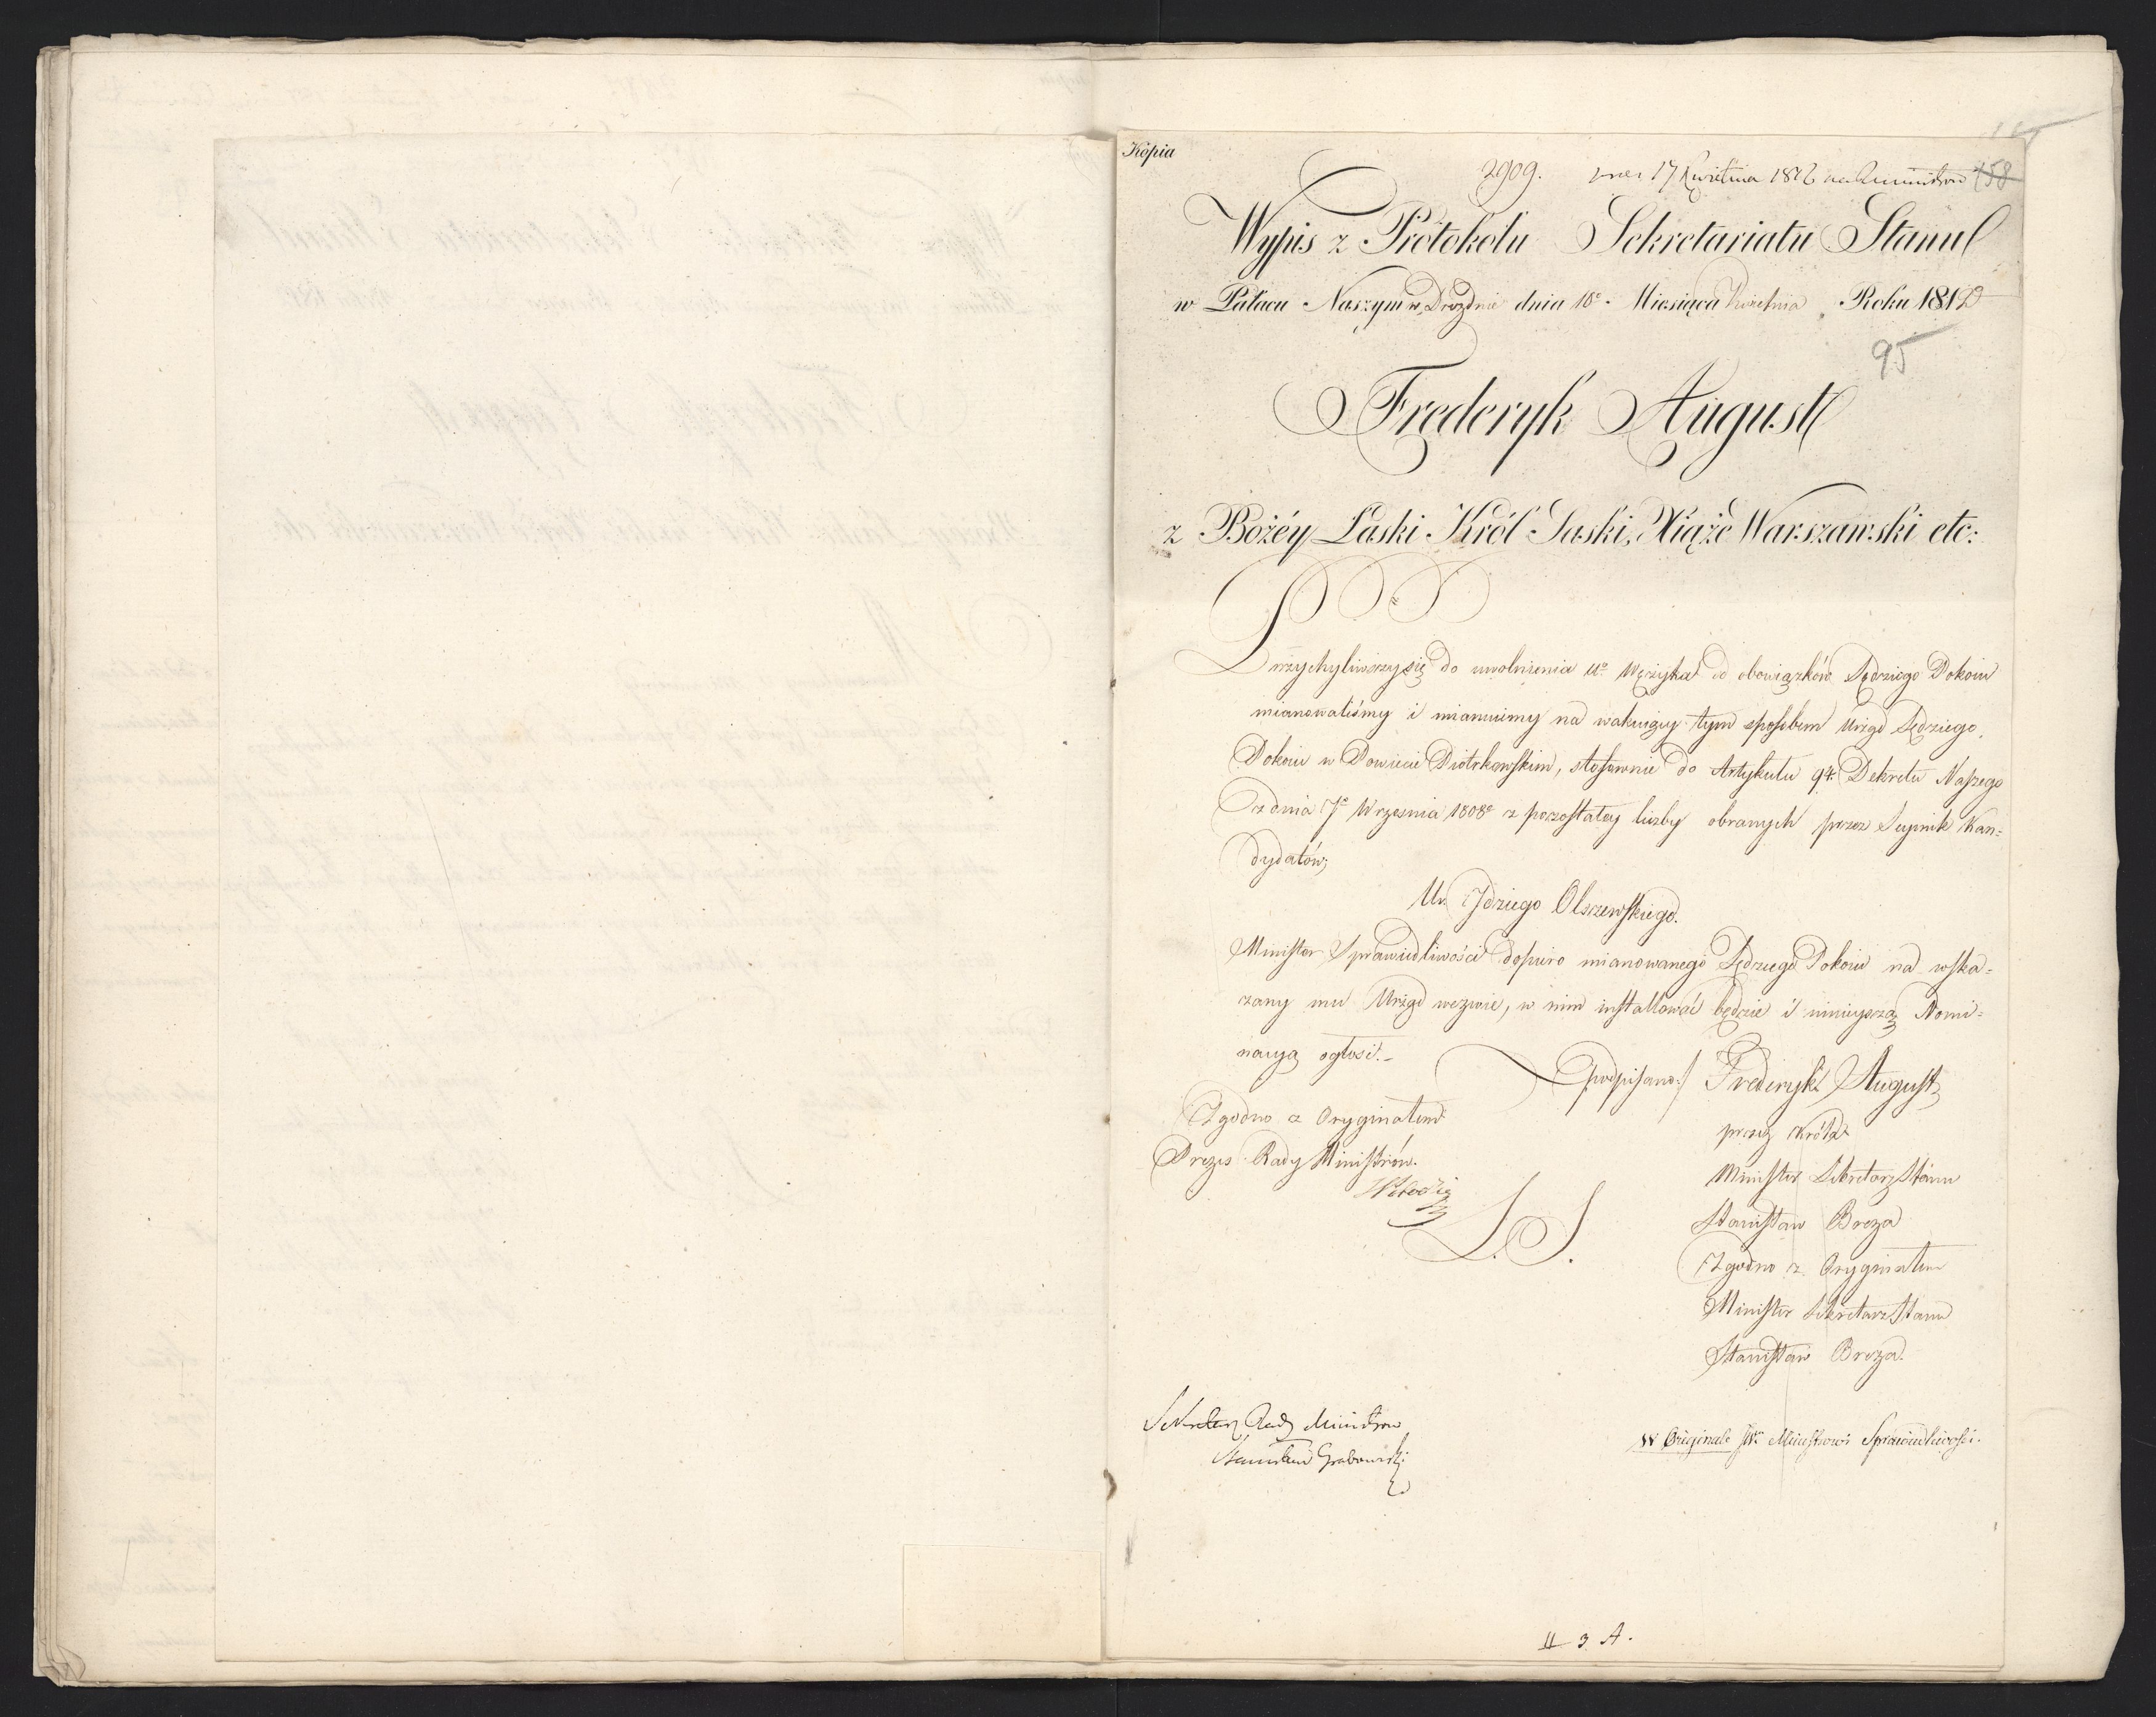 Kopia
2909. 17 Kwietnia 1812 158
Wypis z Protokołu Sekretariatu Stanu
w Pałacu Naszym w Dreźnie dnia 10º. Miesiąca Kwietnia Roku 1812
95
Frederyk August
z Bożéy Łaski Król Saski, Xiąże Warszawski etc:
Przychyliwszy się do uwolnienia Uº Wężyka od obowiązków Sędziego Pokoiu
mianowaliśmy i mianuiemy na wakuiący tym sposobem Urząd Sędziego
Pokoiu w Powiecie Piotrkowskim, stosownie do Artykułu 94 Dekretu Naszego
z dnia 7º Września 1808º z pozostałey liczby obranych przez Seymik Kan=
dydatów;
Ur. Idziego Olszewskiego.
Minister Sprawiedliwości dopiero mianowanego Sędziego Pokoiu na wska=
zany mu Urząd wezwie, w nim installować będzie i ninieyszą Nomi=
nacyą ogłosi._
podpisano:/ Frederyk August,
przez Króla
Minister Sekretarz Stanu
Stanisław Breza
Zgodno z Oryginałem
Minister Sekretarz Stanu
Stanisław Breza.
Zgodno z Oryginałem
Prezes Rady Ministrów.
L.S.
Sekretarz Rady Ministrow
Stanisław Grabowski
W Originale JWº Ministrowi Sprawiedliwości.
II 3 A.